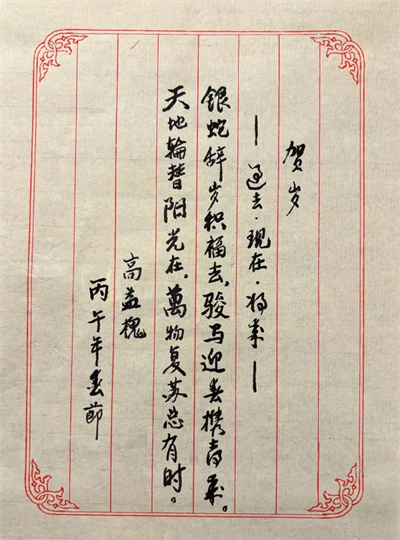 贺岁
—过去·现在·将来—
银蛇辞岁积福去，骏马迎春携青来。
天地輪替阳光在，萬物复苏总有时。
高益槐
丙午年春節